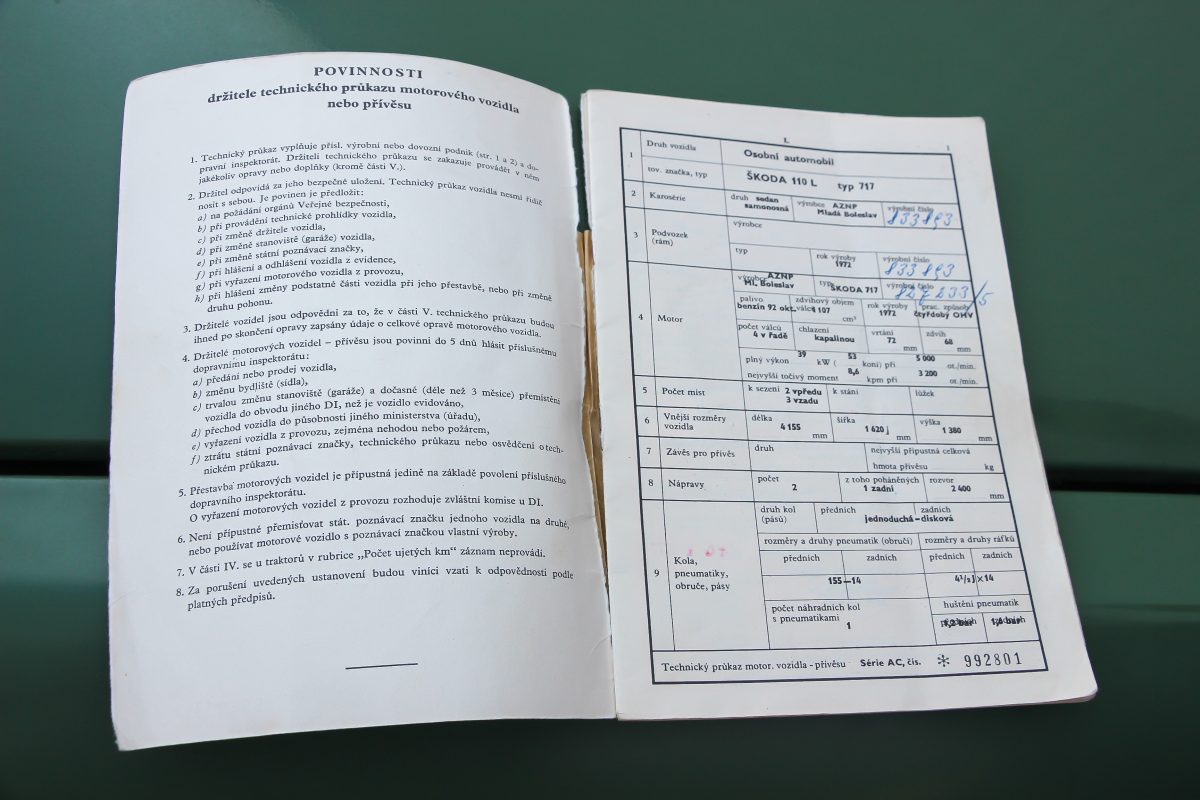 POVINNOSTI
držitele technického průkazu motorového vozidla
nebo přívěsu
1. Technický průkaz vyplňuje přísl. výrobní nebo dovozní podnik (str. 1 a 2) a do-
pravní inspektorát. Držiteli technického průkazu se zakazuje provádět v něm
jakékoliv opravy nebo doplňky (kromě části V.).
2. Držitel odpovídá za jeho bezpečné uložení. Technický průkaz vozidla nesmí řidič
nosit s sebou. Je povinen je předložit:
a) na požádání orgánů Veřejné bezpečnosti,
b) při provádění technické prohlídky vozidla,
c) při změně držitele vozidla,
d) při změně stanoviště (garáže) vozidla,
e) při změně státní poznávací značky,
f) při hlášení a odhlášení vozidla z evidence,
g) při vyřazení motorového vozidla z provozu,
h) při hlášení změny podstatné části vozidla při jeho přestavbě, nebo při změně
druhu pohonu.
3. Držitelé vozidel jsou odpovědni za to, že v části V. technického průkazu budou
ihned po skončení opravy zapsány údaje o celkové opravě motorového vozidla.
4. Držitelé motorových vozidel – přívěsu jsou povinni do 5 dnů hlásit příslušnému
dopravnímu inspektorátu:
a) předání nebo prodej vozidla,
b) změnu bydliště (sídla),
c) trvalou změnu stanoviště (garáže) a dočasné (déle než 3 měsíce) přemístění
vozidla do obvodu jiného DI, než je vozidlo evidováno,
d) přechod vozidla do působnosti jiného ministerstva (úřadu),
e) vyřazení vozidla z provozu, zejména nehodou nebo požárem,
f) ztrátu státní poznávací značky, technického průkazu nebo osvědčení o tech-
nickém průkazu.
5. Přestavba motorových vozidel je přípustná jedině na základě povolení příslušného
dopravního inspektorátu.
O vyřazení motorových vozidel z provozu rozhoduje zvláštní komise u DI.
6. Není přípustné přemisťovat stát. poznávací značku jednoho vozidla na druhé,
nebo používat motorové vozidlo s poznávací značkou vlastní výroby.
7. V části IV. se u traktorů v rubrice „Počet ujetých km“ záznam neprovádí.
8. Za porušení uvedených ustanovení budou viníci vzati k odpovědnosti podle
platných předpisů.
I. 1
1 Druh vozidla Osobní automobil
tov. značka, typ ŠKODA 110 L typ 717
2 Karosérie druh sedan samonosná výrobce AZNP Mladá Boleslav výrobní číslo 833893
3 Podvozek (rám) výrobce
typ rok výroby 1972 výrobní číslo 833893
4 Motor výrobce AZNP Ml. Boleslav typ ŠKODA 717 výrobní číslo
palivo benzin 92 okt. zdvihový objem válců 1 107 cm³ rok výroby 1972 prac. způsob čtyřdobý OHV
počet válců 4 v řadě chlazení kapalinou vrtání 72 mm zdvih 68 mm
plný výkon 39 kW ( 53 koní) při 5 000 ot./min.
nejvyšší točivý moment 8,6 kpm při 3 200 ot./min.
5 Počet míst k sezení 2 vpředu 3 vzadu k stání lůžek
6 Vnější rozměry vozidla délka 4 155 mm šířka 1 620 mm výška 1 380 mm
7 Závěs pro přívěs druh nejvyšší přípustná celková
hmota přívěsu kg
8 Nápravy počet 2 z toho poháněných 1 zadní rozvor 2 400 mm
9 Kola, pneumatiky, obruče, pásy
druh kol (pásů) předních zadních
jednoduchá–disková
rozměry a druhy pneumatik (obručí) rozměry a druhy ráfků
předních zadních předních zadních
155–14 4½J×14
počet náhradních kol huštění pneumatik
s pneumatikami 1
Technický průkaz motor. vozidla - přívěsu Série AC, čís. * 992801